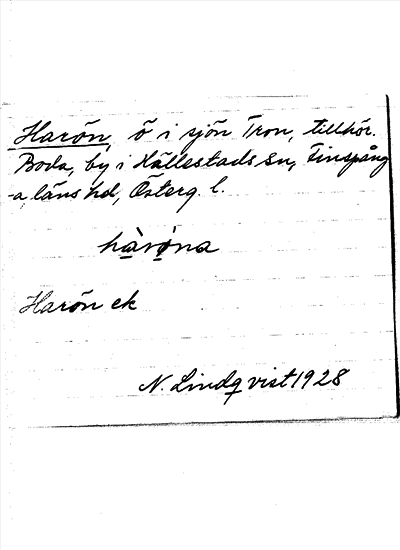 Harön, ö i sjön Tron, tillhör.
Boda, by i Hällestads sn, Finspång
-a läns hd, Österg. l.
hàrø̀na
Harön ek
N. Lindqvist 1928